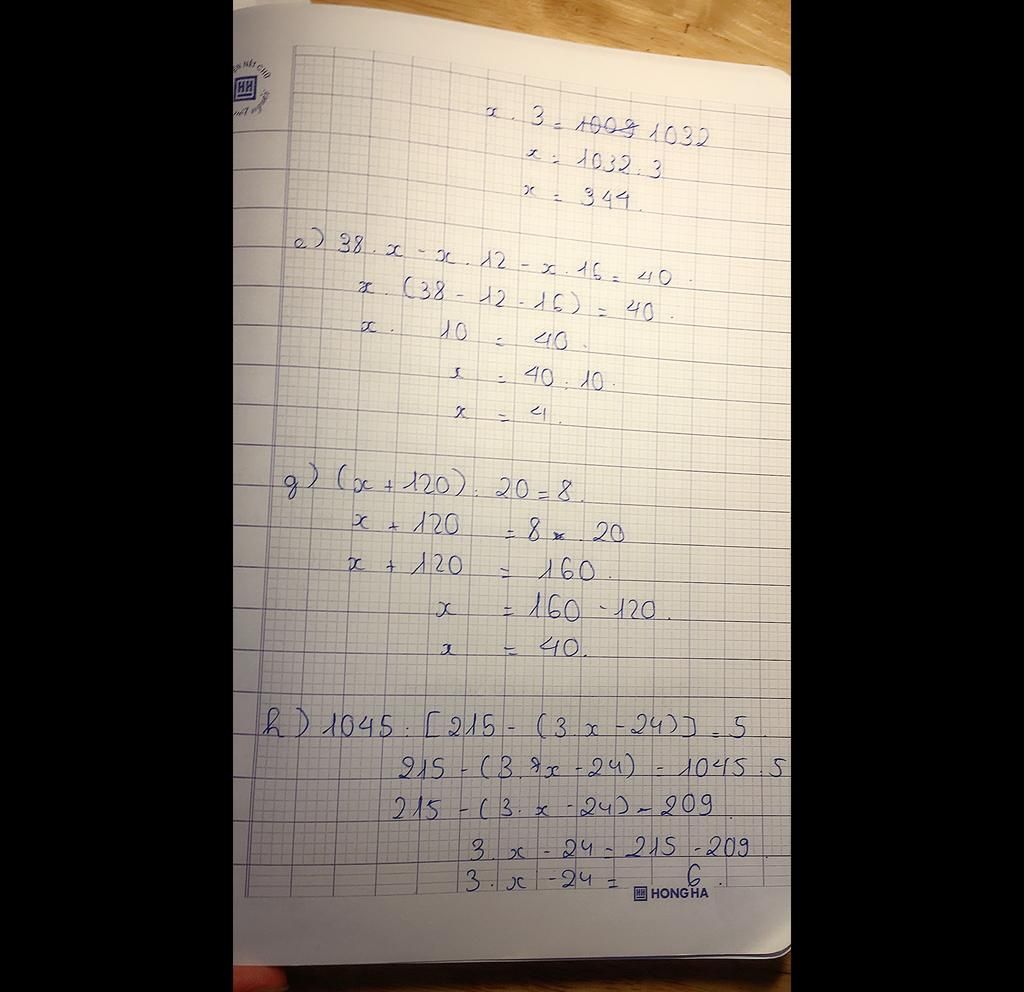 x . 3 = 1009 1032
x = 1032 : 3
x = 344.
e) 38 . x - x . 12 - x . 16 = 40 .
x . (38 - 12 - 16) = 40 .
x . 10 = 40 .
x = 40 : 10 .
x = 4 .
g) (x + 120) : 20 = 8 .
x + 120 = 8 . 20
x + 120 = 160 .
x = 160 - 120 .
x = 40 .
h) 1045 : [215 - (3 . x - 24)] = 5
215 - (3 . x - 24) = 1045 : 5
215 - (3 . x - 24) = 209
3 . x - 24 = 215 - 209
3 . x - 24 = 6 .
HONG HA